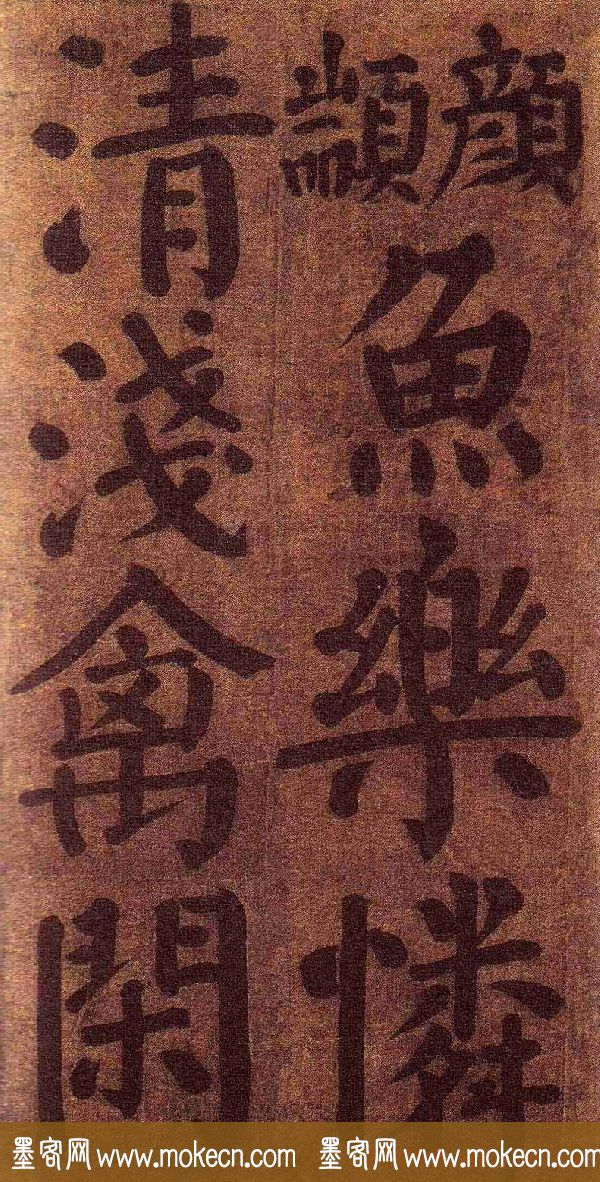 顔顓魚樂憐
清淺禽閑
墨客网 www.mokecn.com 墨客网 www.mokecn.com